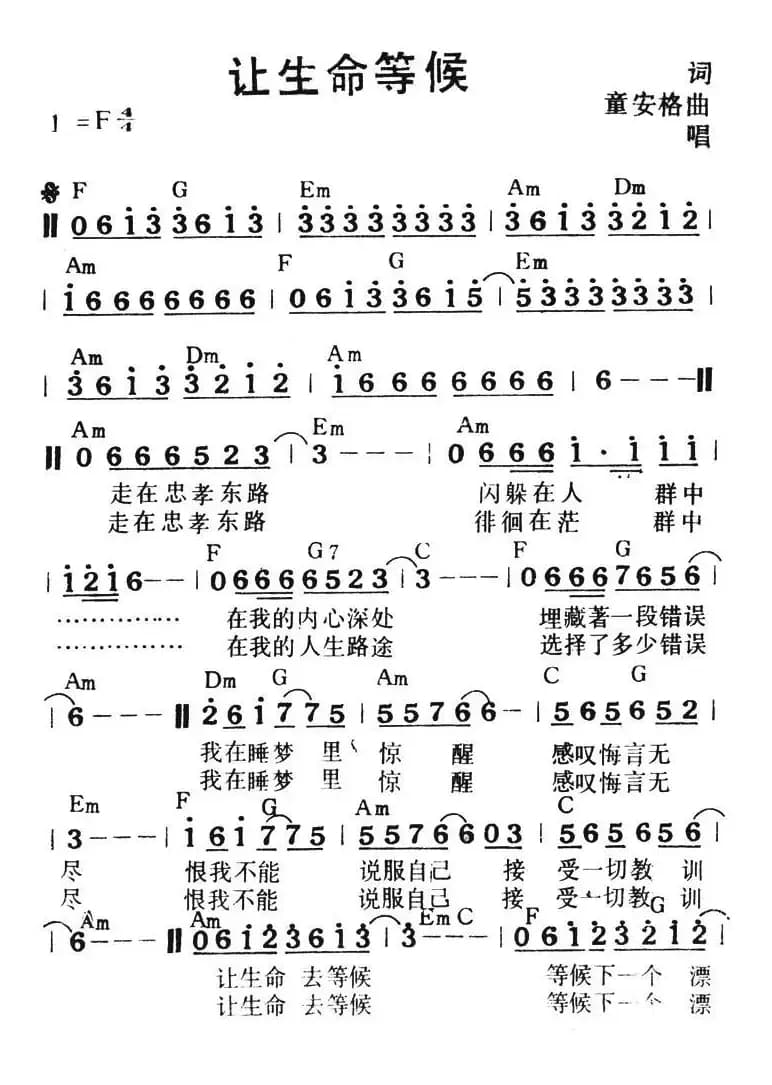 让生命等候
词
童安格曲
唱
1 = F 4/4
F G Em Am Dm
‖ 0 6 1̇ 3̇ 3̇ 6 1̇ 3̇ | 3̇ 3̇ 3̇ 3̇ 3̇ 3̇ 3̇ 3̇ | 3̇ 6 1̇ 3̇ 3̇ 2̇ 1̇ 2̇ |
Am F G Em
| 1̇ 6 6 6 6 6 6 6 | 0 6 1̇ 3̇ 3̇ 6 1̇ 5̇ | 5̇ 3̇ 3̇ 3̇ 3̇ 3̇ 3̇ 3̇ |
Am Dm Am
| 3̇ 6 1̇ 3̇ 3̇ 2̇ 1̇ 2̇ | 1̇ 6 6 6 6 6 6 6 | 6 - - - ‖
Am Em Am
‖ 0 6 6 6 6 5 2 3 | 3 - - - | 0 6 6 6 1̇ · 1̇ 1̇ 1̇ |
走在忠孝东路 闪躲在人 群中
走在忠孝东路 徘徊在茫 群中
F G7 C F G
| 1̇ 2̇ 1̇ 6 - - | 0 6 6 6 6 5 2 3 | 3 - - - | 0 6 6 6 7 6 5 6 |
…………… 在我的内心深处 埋藏著一段错误
…………… 在我的人生路途 选择了多少错误
Am Dm G Am C G
| 6 - - - ‖ 2̇ 6 1̇ 7 7 5 | 5 5 7 6 6 - | 5 6 5 6 5 2 |
我在睡梦 里 惊 醒 感叹悔言无
我在睡梦 里 惊 醒 感叹悔言无
Em F G Am C
| 3 - - - | 1̇ 6 1̇ 7 7 5 | 5 5 7 6 6 0 3 | 5 6 5 6 5 6 |
尽 恨我不能 说服自己 接 受一切教 训
尽 恨我不能 说服自己 接 受一切教 训
Am Am Em C F G
| 6 - - - ‖ 0 6 1̇ 2̇ 3̇ 6 1̇ 3̇ | 3̇ - - - | 0 6 1̇ 2̇ 3̇ 2̇ 1̇ 2̇ |
让生命 去等候 等候下一个 漂
让生命 去等候 等候下一个 漂